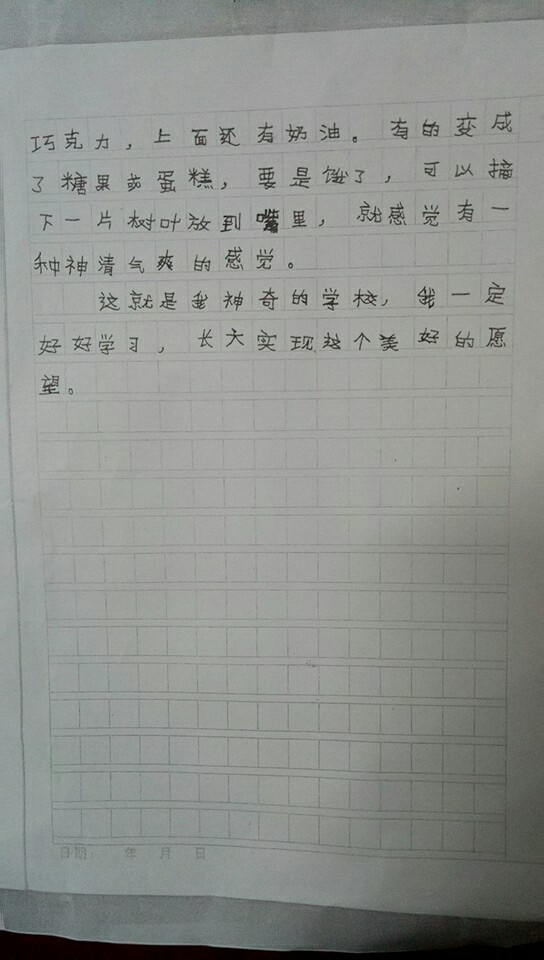 巧克力，上面还有奶油。有的变成
了糖果或蛋糕，要是饿了，可以摘
下一片树叶放到嘴里，就感觉有一
种神清气爽的感觉。
这就是我神奇的学校，我一定
好好学习，长大实现这个美好的愿
望。
日期： 年 月 日